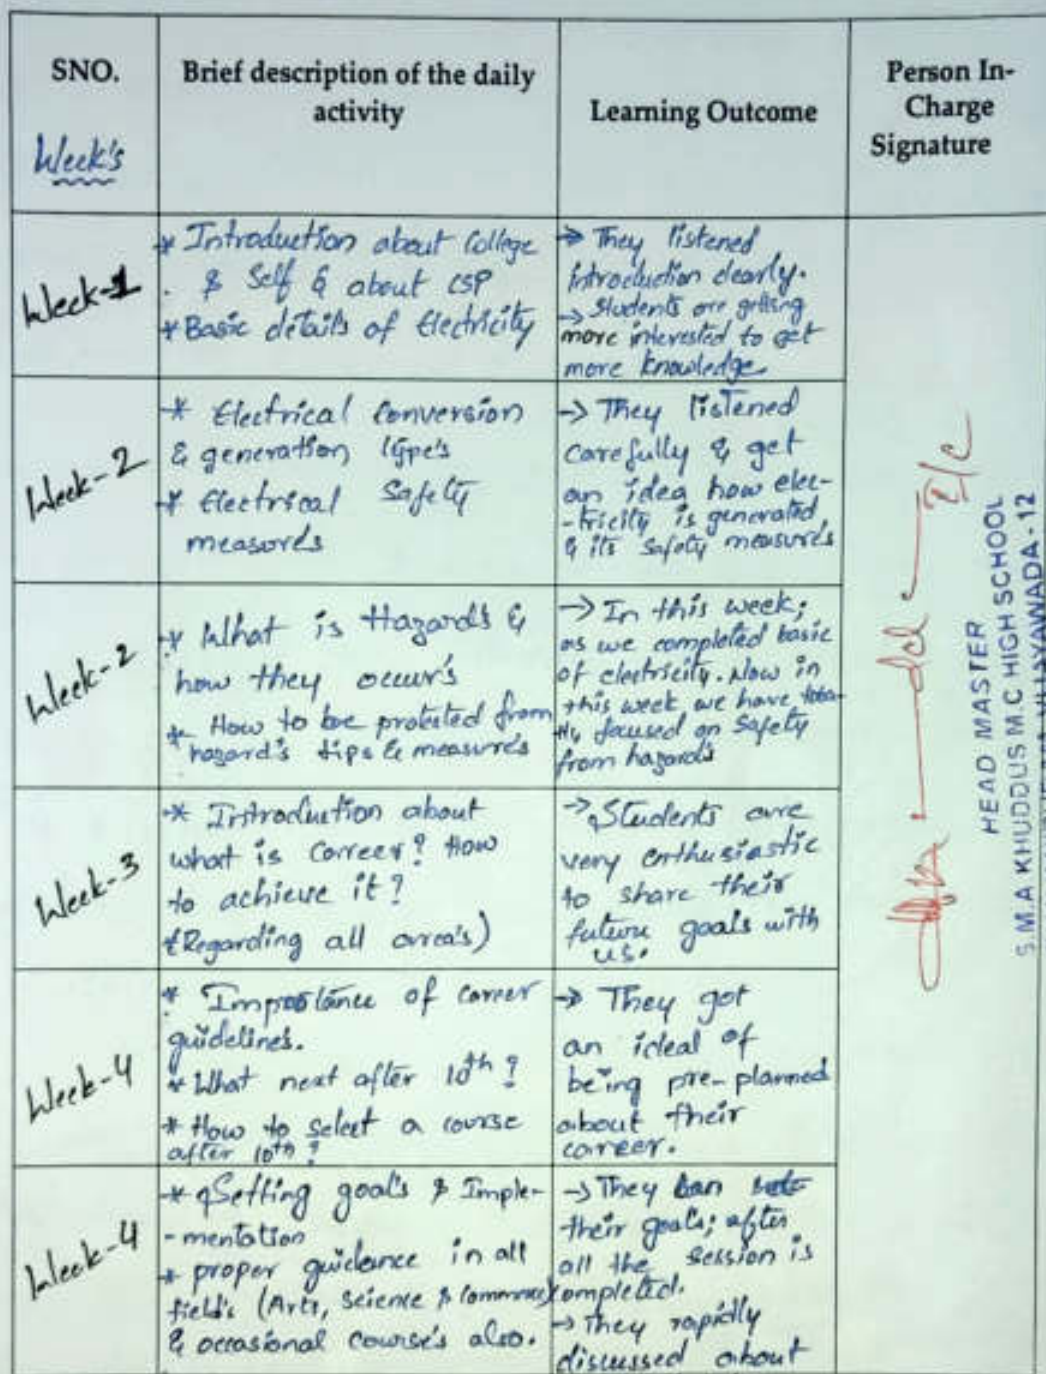 SNO.
Week's
Brief description of the daily
activity
Learning Outcome
Person In-
Charge
Signature
Week-1
* Introduction about College
& Self & about CSP
* Basic details of Electricity
→ They listened
introduction clearly.
→ Students are getting
more interested to get
more knowledge
Week-2
* Electrical Conversion
& generation type's
* Electrical Safety
measures
→ They listened
carefully & get
an idea how elec-
-tricity is generated
& its safety measures
Week-2
* What is Hazards &
how they occur's
* How to be protected from
hazard's tips & measures
→ In this week;
as we completed basic
of electricity. Now in
this week we have
focused on Safety
from hazards
Week-3
* Introduction about
what is Career? How
to achieve it?
(Regarding all area's)
→ Students are
very enthusiastic
to share their
future goals with
us.
Week-4
* Importance of career
guidelines.
* What next after 10th?
* How to select a course
after 10th?
→ They got
an ideal of
being pre-planned
about their
career.
Week-4
* Setting goal's & Imple-
-mentation
* proper guidance in all
field's (Arts, Science & Commerce)
& occasional course's also.
→ They
their goals; after
all the session is
completed.
→ They rapidly
discussed about
I/c
HEAD MASTER
S.M.A KHUDDUS M.C HIGH SCHOOL
VIJAYAWADA-12